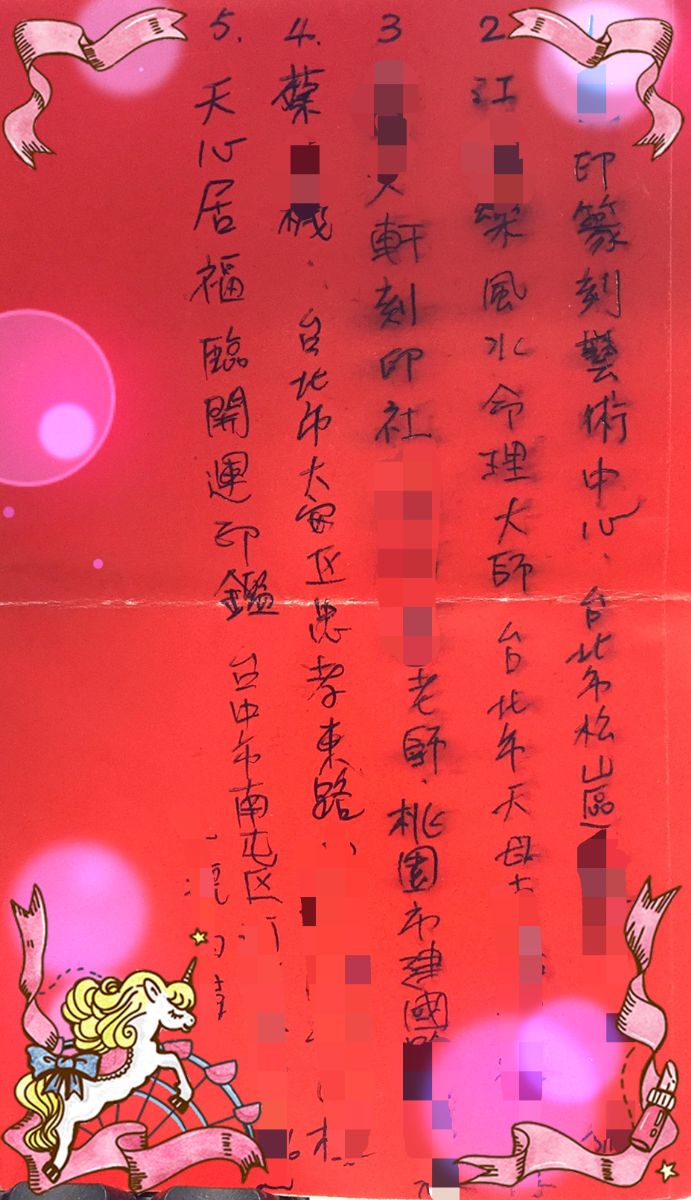 印篆刻藝術中心、台北市松山區
2 江 樂風水命理大師 台北市天母
3 文軒刻印社 老師、桃園市建國路
4. 蔡 機、台北市大安区忠孝東路
5. 天心居福臨開運印鑑 台中市南屯区